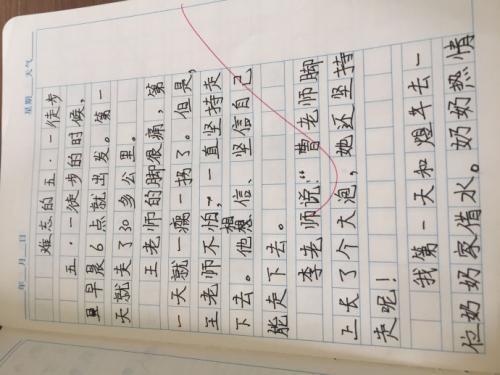 年 月 日 星期 天气
难忘的五·一徒步
五·一徒步的时候,
早晨6点就出发。第一
天就走了30多公里。
王老师的脚很痛,第
一天就一瘸一拐了。但是,
王老师不怕,一直坚持走
下去。他想信、坚信自己
能走下去。
李老师说:“曹老师脚
上长了个大泡,她还坚持
走呢!
我第一天和煜年去一
位奶奶家借水。奶奶热情